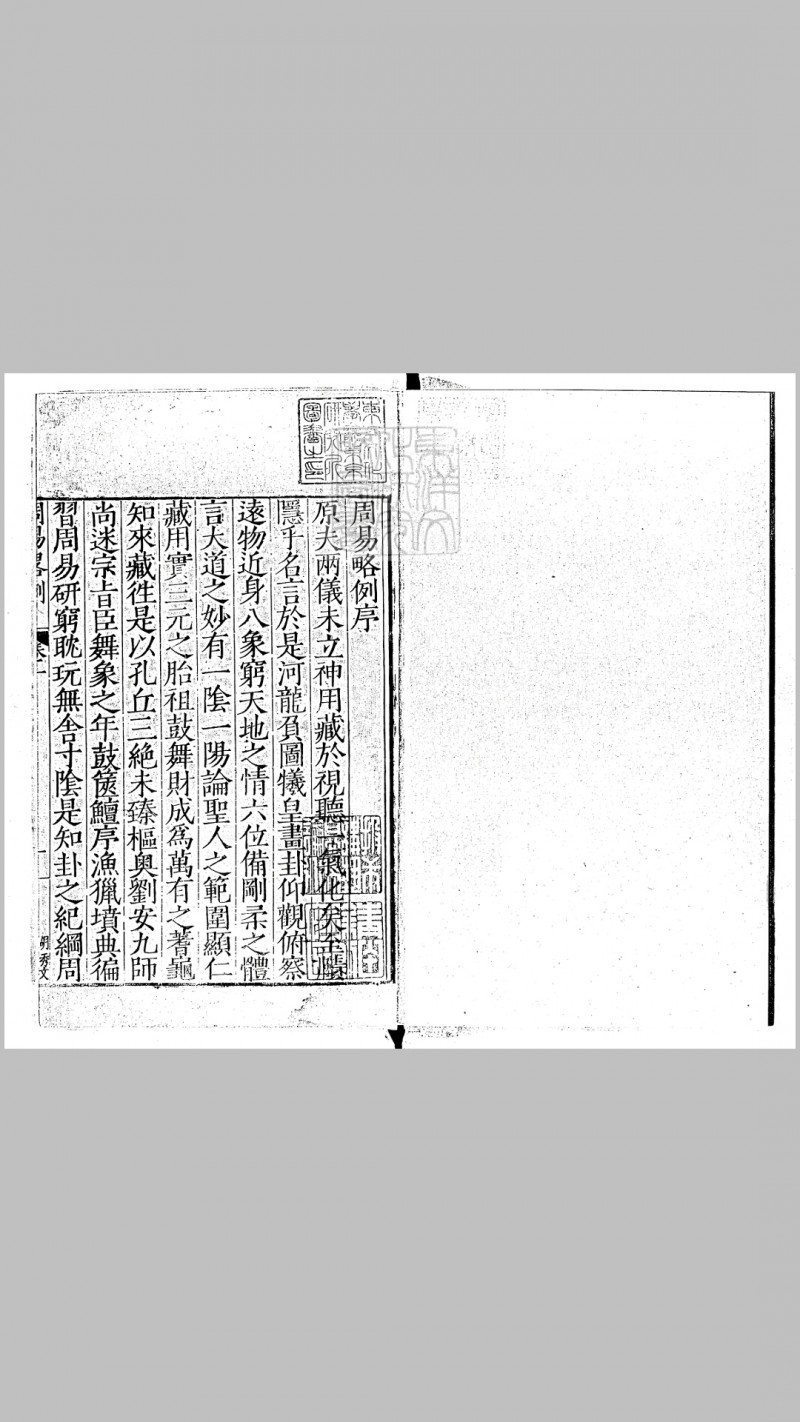 周易略例序
原夫兩儀未立神用藏於視聽一氣化矣至賾
隱乎名言於是河龍負圖犧皇畫卦仰觀俯察
遠物近身八象窮天地之情六位備剛柔之體
言大道之妙有一陰一陽論聖人之範圍顯仁
藏用實三元之胎祖鼓舞財成爲萬有之蓍龜
知來藏徃是以孔丘三絶未臻樞奥劉安九師
尚迷宗旨臣舞象之年鼓篋鱣序漁獵墳典徧
習周易研窮耽玩無舎寸陰是知卦之紀綱周
周易畧例